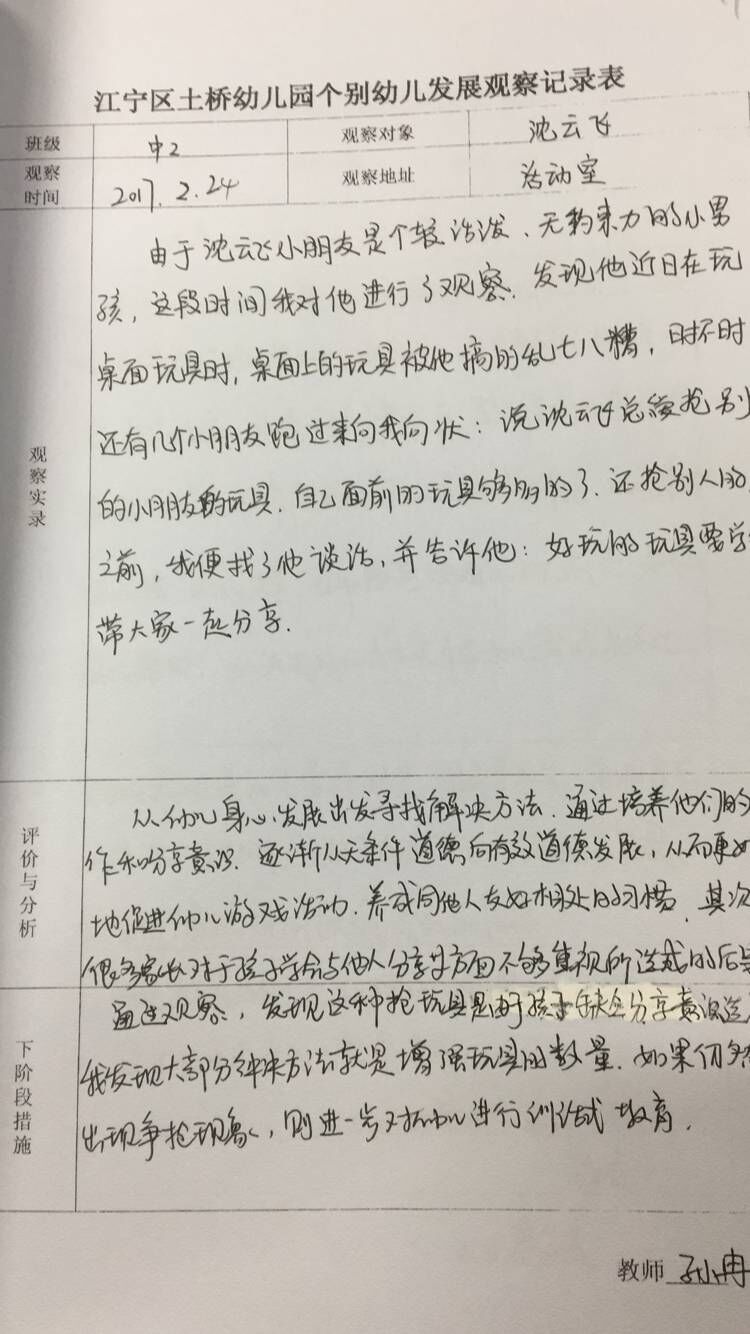 江宁区土桥幼儿园个别幼儿发展观察记录表
班级 中2 观察对象 沈云飞
观察时间 2017.2.24 观察地址 活动室
观察实录
由于沈云飞小朋友是个较活泼、无约束力的小男
孩，这段时间我对他进行了观察．发现他近日在玩
桌面玩具时，桌面上的玩具被他搞的乱七八糟，时不时
还有几个小朋友跑过来向我向状：说沈云飞总缓抢别
的小朋友的玩具．自己面前的玩具够多的了．还抢别人的
之前，我便找了他谈话，并告许他：好玩的玩具要学
带大家一起分享．
评价与分析
从幼儿身心发展出发寻找解决方法．通过培养他们的
作和分享意识．逐渐从无条件道德向有效道德发展，从而更好
地促进幼儿游戏活动．养成同他人友好相处的习惯．其次
很多家长对于孩子学会与他人分享方面不够重视所造成的后果
下阶段措施
通过观察，发现这种抢玩具是由于孩子缺乏分享意识造
我发现大部分解决方法就是增强玩具的数量．如果仍然
出现争抢现象，则进一步对幼儿进行训话式教育．
教师 孙冉